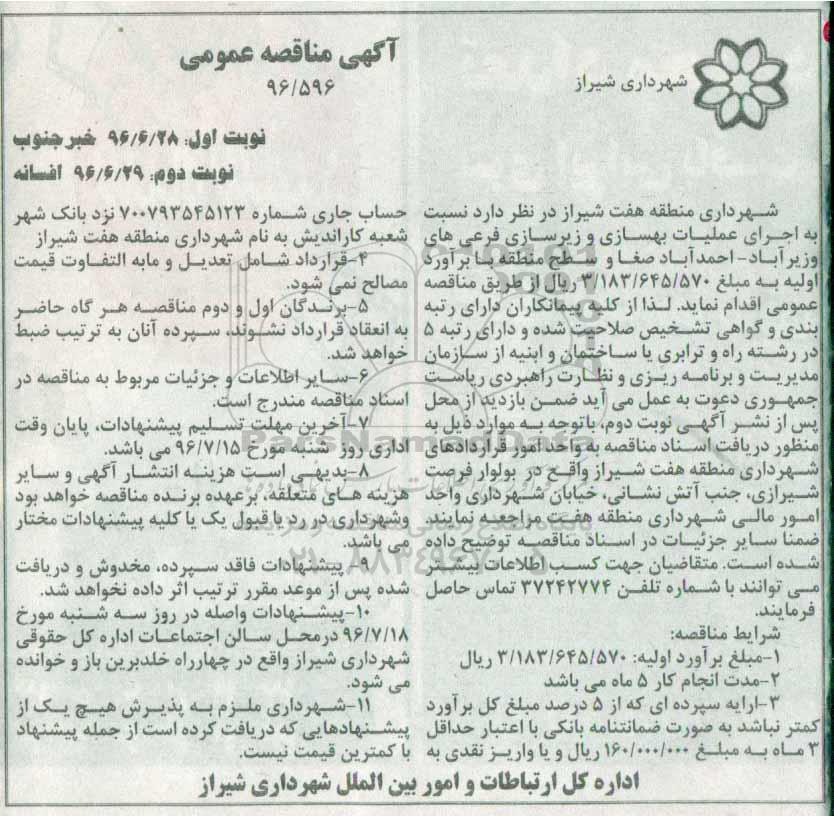 شهرداری شیراز
آگهی مناقصه عمومی
۹۶/۵۹۶
نوبت اول: ۹۶/۶/۲۸ خبرجنوب
نوبت دوم: ۹۶/۶/۲۹ افسانه
شهرداری منطقه هفت شیراز در نظر دارد نسبت
به اجرای عملیات بهسازی و زیرسازی فرعی های
وزیرآباد-احمدآباد صغا و سطح منطقه با برآورد
اولیه به مبلغ ۳/۱۸۳/۶۴۵/۵۷۰ ریال از طریق مناقصه
عمومی اقدام نماید. لذا از کلیه پیمانکاران دارای رتبه
بندی و گواهی تشخیص صلاحیت شده و دارای رتبه ۵
در رشته راه و ترابری یا ساختمان و ابنیه از سازمان
مدیریت و برنامه ریزی و نظارت راهبردی ریاست
جمهوری دعوت به عمل می آید ضمن بازدید از محل
پس از نشر آگهی نوبت دوم، باتوجه به موارد ذیل به
منظور دریافت اسناد مناقصه به واحد امور قراردادهای
شهرداری منطقه هفت شیراز واقع در بولوار فرصت
شیرازی، جنب آتش نشانی، خیابان شهرداری واحد
امور مالی شهرداری منطقه هفت مراجعه نمایند.
ضمنا سایر جزئیات در اسناد مناقصه توضیح داده
شده است. متقاضیان جهت کسب اطلاعات بیشتر
می توانند با شماره تلفن ۳۷۲۴۲۷۷۴ تماس حاصل
فرمایند.
شرایط مناقصه:
۱-مبلغ برآورد اولیه: ۳/۱۸۳/۶۴۵/۵۷۰ ریال
۲-مدت انجام کار ۵ ماه می باشد
۳-ارایه سپرده ای که از ۵ درصد مبلغ کل برآورد
کمتر نباشد به صورت ضمانتنامه بانکی با اعتبار حداقل
۳ ماه به مبلغ ۱۶۰/۰۰۰/۰۰۰ ریال و یا واریز نقدی به
حساب جاری شماره ۷۰۰۷۹۳۵۴۵۱۲۳ نزد بانک شهر
شعبه کاراندیش به نام شهرداری منطقه هفت شیراز
۴-قرارداد شامل تعدیل و مابه التفاوت قیمت
مصالح نمی شود.
۵-برندگان اول و دوم مناقصه هر گاه حاضر
به انعقاد قرارداد نشوند، سپرده آنان به ترتیب ضبط
خواهد شد.
۶-سایر اطلاعات و جزئیات مربوط به مناقصه در
اسناد مناقصه مندرج است.
۷-آخرین مهلت تسلیم پیشنهادات، پایان وقت
اداری روز شنبه مورخ ۹۶/۷/۱۵ می باشد.
۸-بدیهی است هزینه انتشار آگهی و سایر
هزینه های متعلقه، برعهده برنده مناقصه خواهد بود
وشهرداری در رد یا قبول یک یا کلیه پیشنهادات مختار
می باشد.
۹- پیشنهادات فاقد سپرده، مخدوش و دریافت
شده پس از موعد مقرر ترتیب اثر داده نخواهد شد.
۱۰-پیشنهادات واصله در روز سه شنبه مورخ
۹۶/۷/۱۸ درمحل سالن اجتماعات اداره کل حقوقی
شهرداری شیراز واقع در چهارراه خلدبرین باز و خوانده
می شود.
۱۱-شهرداری ملزم به پذیرش هیچ یک از
پیشنهادهایی که دریافت کرده است از جمله پیشنهاد
با کمترین قیمت نیست.
اداره کل ارتباطات و امور بین الملل شهرداری شیراز
ParsNamadData